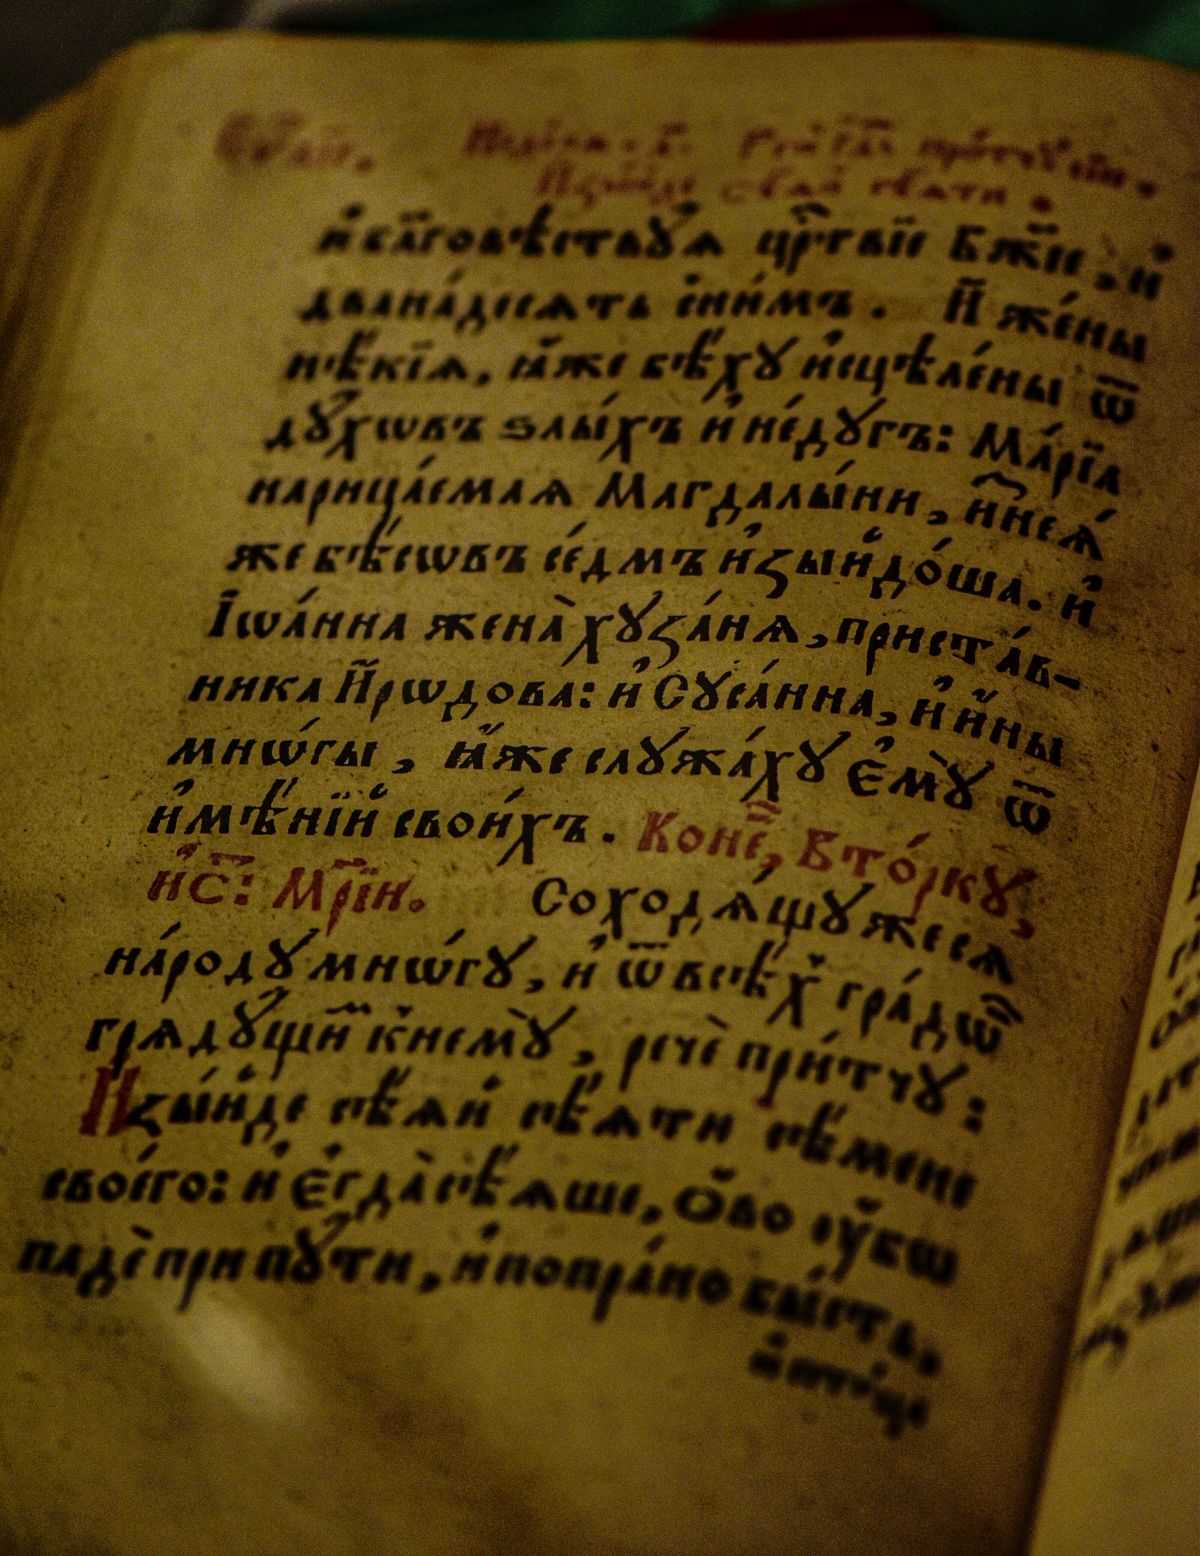 и҆ бл҃говѣствꙋѧ црⷭ҇твїе Бж҃їе, и҆
двана́десѧть с ни́мъ. И҆ жє́ны
нѣ́кїѧ, ꙗ҆̀же бѣ́хꙋ и҆сцѣлє́ны ѿ
дꙋ́хѡвъ ѕлы́хъ и҆ недꙋ́гъ: Мари́а
нарица́емаѧ Магдалы́ни, и҆з̾ неѧ́
же бѣсѡ́въ се́дмь и҆зы́йдоша. и҆
І҆ѡа́нна жена̀ хꙋза́нѧ, приста́в-
ника И҆́рѡдова: и҆ Сꙋса́нна, и҆ и҆́ны
мнѡ́гы, ꙗ҆̀же слꙋжа́хꙋ Є҆мꙋ̀ ѿ
и҆мѣ́нїй свои́хъ. Коне́ц, Вто́ркꙋ,
и҆ С҃: Мр҃їи. Сходѧ́щꙋ же сѧ
наро́дꙋ мнѡ́гꙋ, и҆ ѿ всѣ́х гра́дѡ
грѧдꙋ́щи к̾ немꙋ̀, речѐ при́тчꙋ:
И҆зы́йде сѣ́ѧй сѣ́ѧти сѣ́мене
своегѡ̀: и҆ Є҆гда̀ сѣ́ѧше, Ѻ҆́во ᲂу҆́бѡ
падѐ при пꙋти, и҆ попра́но бы́сть.
и҆ пти́цы